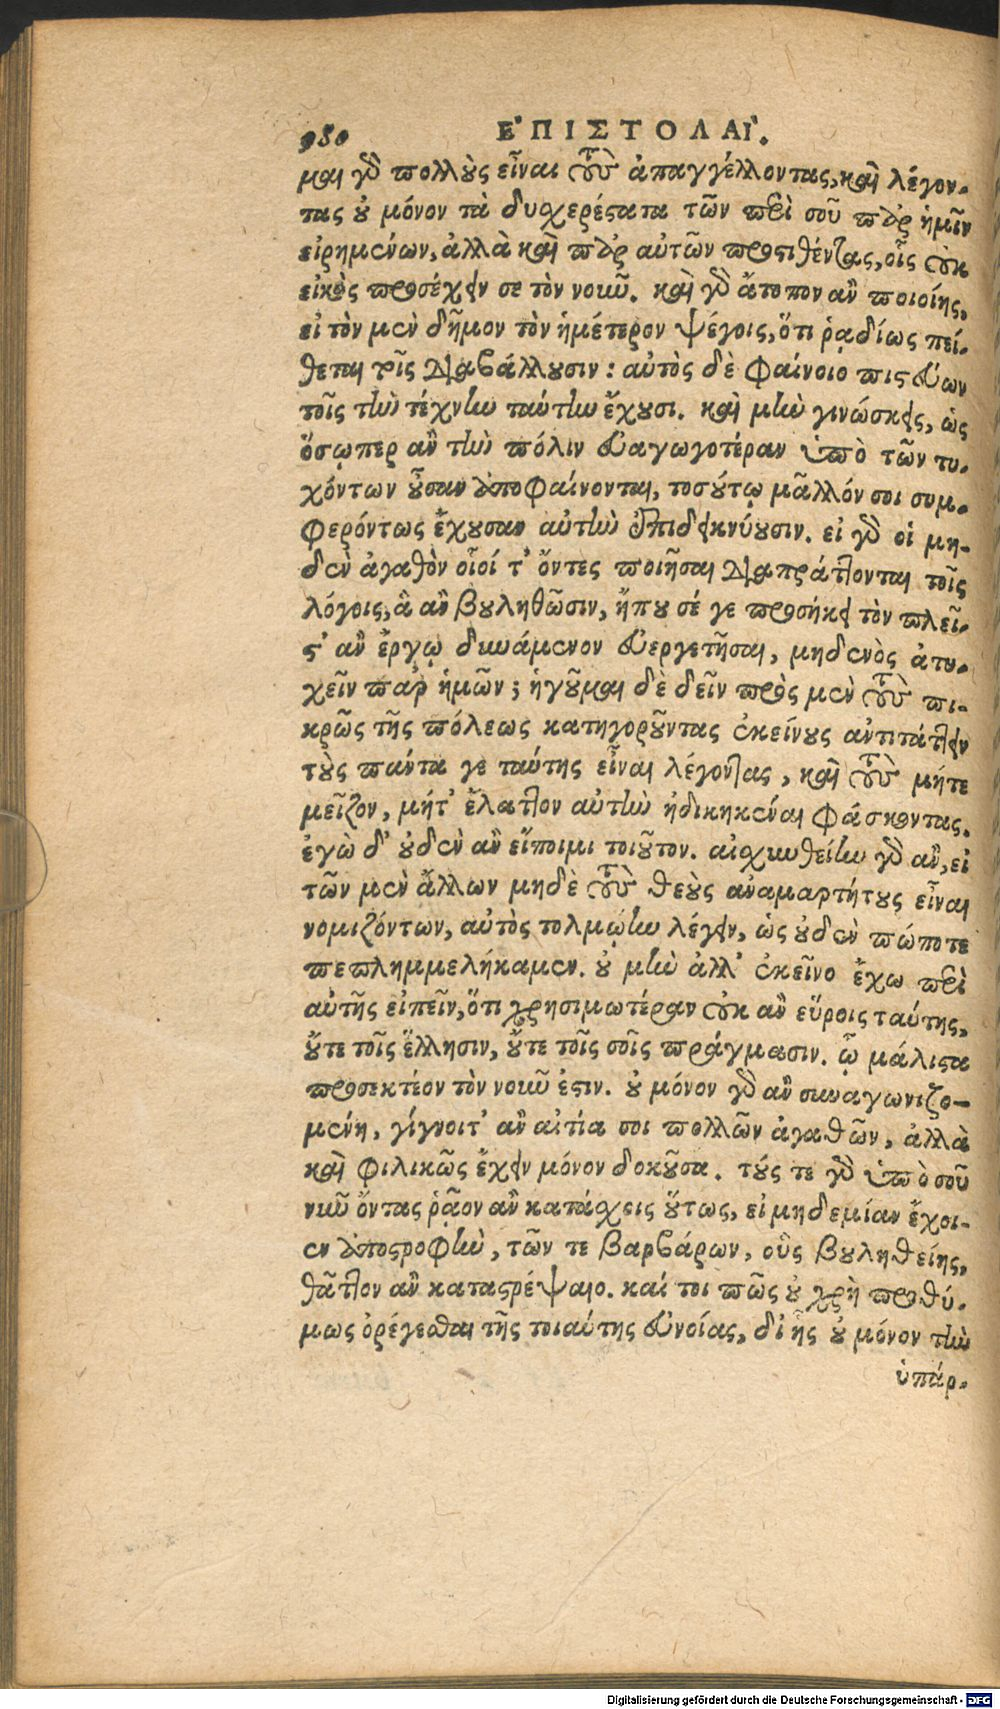 980 ἘΠΙΣΤΟΛΑΊ.
μαι γὸ πολλοὺς εἶναι τοὺς ἀπαγγέλλοντας, καὶ λέγον-
τας οὐ μόνον τὰ δυχερέστατα τῶν περὶ σοῦ παρ' ἡμῖν
εἰρημένων, ἀλλὰ καὶ παρ' αὐτῶν προστιθέντας, οἷς οὐκ
εἰκὸς προσέχειν σε τὸν νοῦν. καὶ γὸ ἄτοπον ἂν ποιοίης,
εἰ τὸν μὲν δῆμον τὸν ἡμέτερον ψέγοις, ὅτι ῥᾳδίως πεί-
θεται τοῖς διαβάλλουσιν: αὐτὸς δὲ φαίνοιο πιστεύων
τοῖς τὴν τέχνην ταύτην ἔχουσι. καὶ μὴν γινώσκεις, ὡς
ὅσῳπερ ἂν τὴν πόλιν εὐαγωγοτέραν ὑπὸ τῶν τυ-
χόντων οὖσαν ἀποφαίνονται, τοσούτῳ μᾶλλόν σοι συμ-
φερόντως ἔχουσαν αὐτὴν ἐπιδεικνύουσιν. εἰ γὸ οἱ μη-
δὲν ἀγαθὸν οἷοί τ' ὄντες ποιῆσαι διαπράττονται τοῖς
λόγοις, ἃ ἂν βουληθῶσιν, ἤπου σέ γε προσήκει τὸν πλεῖ-
στ' ἂν ἔργῳ δυνάμενον εὐεργετῆσαι, μηδενὸς ἀτυ-
χεῖν παρ' ἡμῶν; ἡγοῦμαι δὲ δεῖν πρὸς μὲν τοὺς πι-
κρῶς τῆς πόλεως κατηγοροῦντας ἐκείνους ἀντιτάττειν
τοὺς πάντα γε ταύτης εἶναι λέγοντας, καὶ τοὺς μήτε
μεῖζον, μήτ' ἔλαττον αὐτὴν ἠδικηκέναι φάσκοντας.
ἐγὼ δ' οὐδὲν ἂν εἴποιμι τοιοῦτον. αἰσχυνθείην γὸ ἂν, εἰ
τῶν μὲν ἄλλων μηδὲ τοὺς θεοὺς ἀναμαρτήτους εἶναι
νομιζόντων, αὐτὸς τολμῴην λέγειν, ὡς οὐδὲν πώποτε
πεπλημμελήκαμεν. οὐ μὴν ἀλλ' ἐκεῖνο ἔχω περὶ
αὐτῆς εἰπεῖν, ὅτι χρησιμωτέραν οὐκ ἂν εὕροις ταύτης,
οὔτε τοῖς ἕλλησιν, οὔτε τοῖς σοῖς πράγμασιν. ᾧ μάλιστα
προσεκτέον τὸν νοῦν ἐστιν. οὐ μόνον γὸ ἂν συναγωνιζο-
μένη, γίγνοιτ' ἂν αἰτία σοι πολλῶν ἀγαθῶν, ἀλλὰ
καὶ φιλικῶς ἔχειν μόνον δοκοῦσα. τούς τε γὸ ὑπὸ σοῦ
νῦν ὄντας ῥᾷον ἂν κατάσχοις οὕτως, εἰ μηδεμίαν ἔχοι-
εν ἀποστροφὴν, τῶν τε βαρβάρων, οὓς βουληθείης,
θᾶττον ἂν καταστρέψαιο. καί τοι πῶς οὐ χρὴ προθύ-
μως ὀρέγεσθαι τῆς τοιαύτης εὐνοίας, δι' ἧς οὐ μόνον τὴν
ὑπάρ-
Digitalisierung gefördert durch die Deutsche Forschungsgemeinschaft - DFG